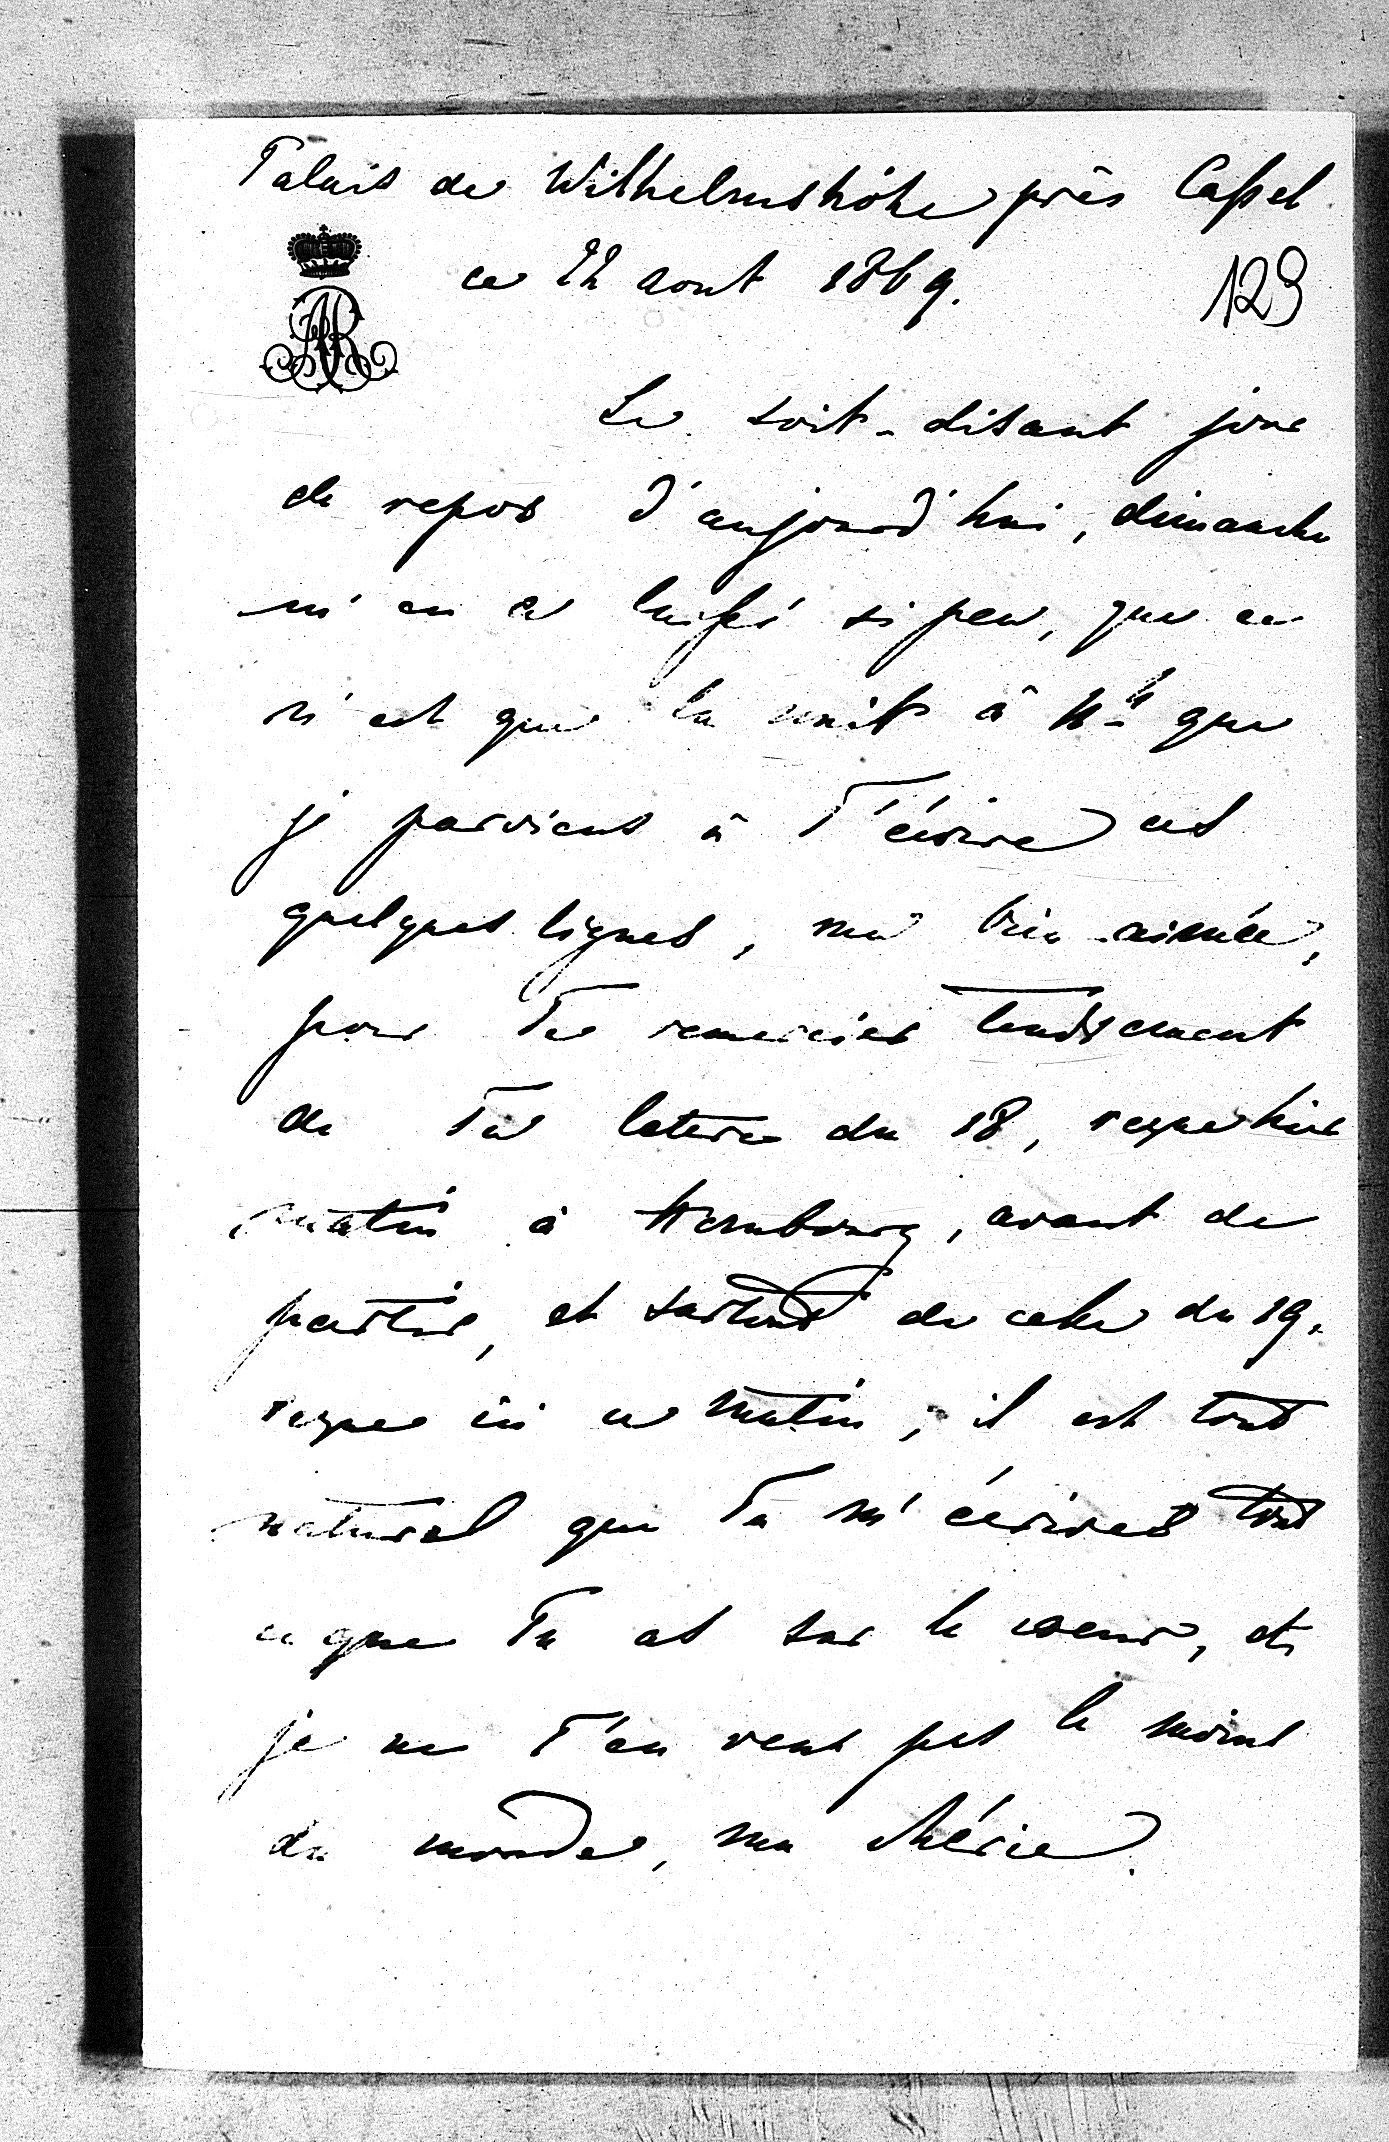 Palais de Wilhelmshöhe près Cassel
ce 22 aout 1869.
129
Le soit-disant jour
de repos d'aujourd'hui, dimanche
m'en a laissé si peu, que ce
n'est que la nuit à 11h que
je parviens à T'écrire ces
quelques lignes, ma bien aimée,
pour Te remercier tendrement
de Ta lettre du 18, reçue hier
matin à Hombourg, avant de
partir, et surtout de celle du 19.
reçue ici ce matin; il est tout
naturel que Tu m'écrives tout
ce que Tu as sur le coeur, et
je ne T'en veux pas le moins
du monde, ma chérie.